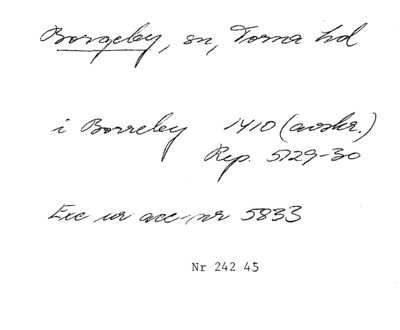 Borgeby, sn, Torna hd
i Borreby 1410 (avskr.)
Rep. 5129-30
Exc ur acc. nr 5833
Nr 242 45